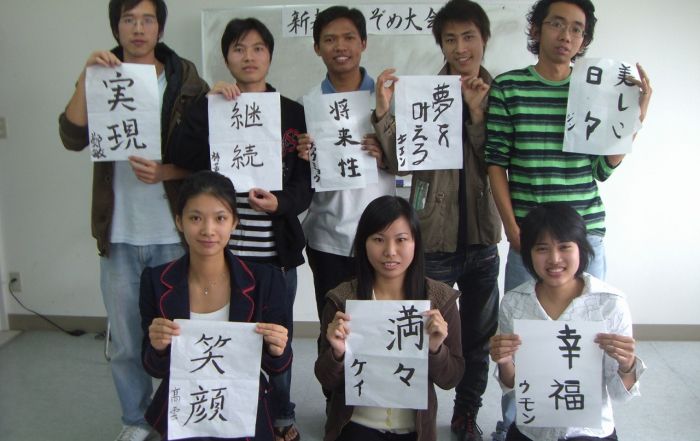 新
ぞめ大会
実現
継続
将来性
夢を
叶えろ
美しい
日々
笑顔
高雲
満々
ケイ
幸福
ウモン